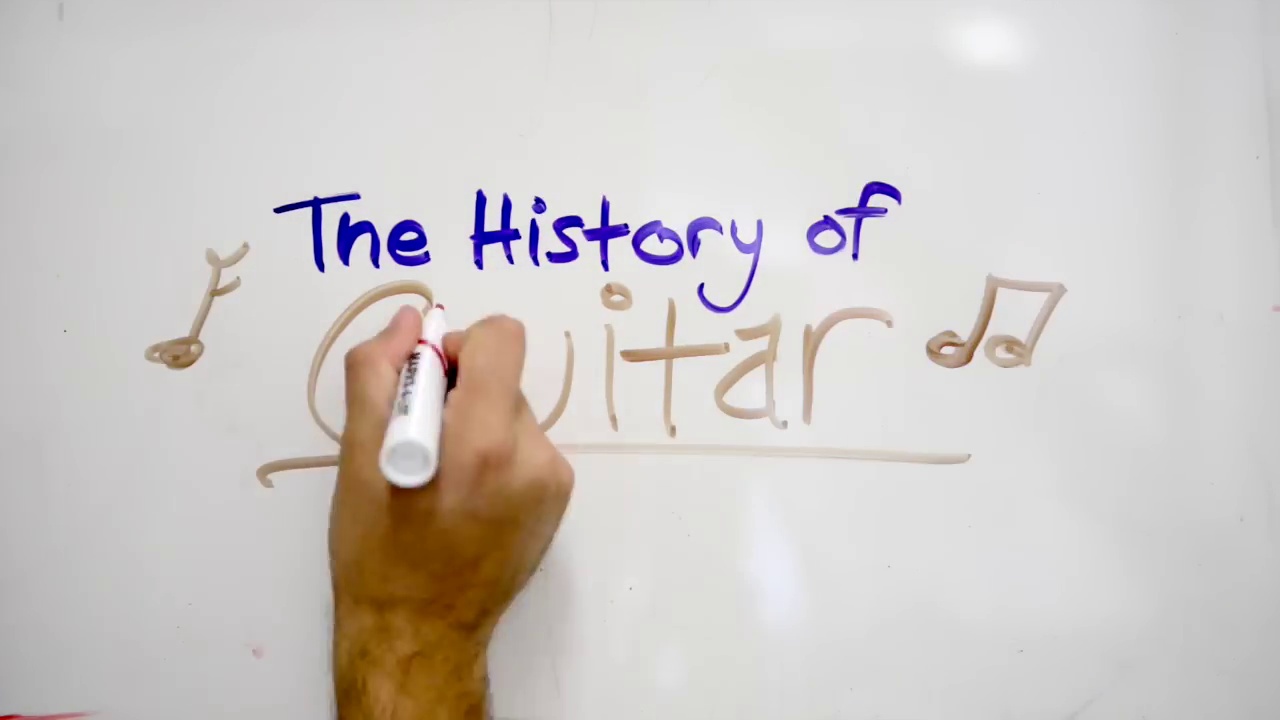 The History of
Guitar